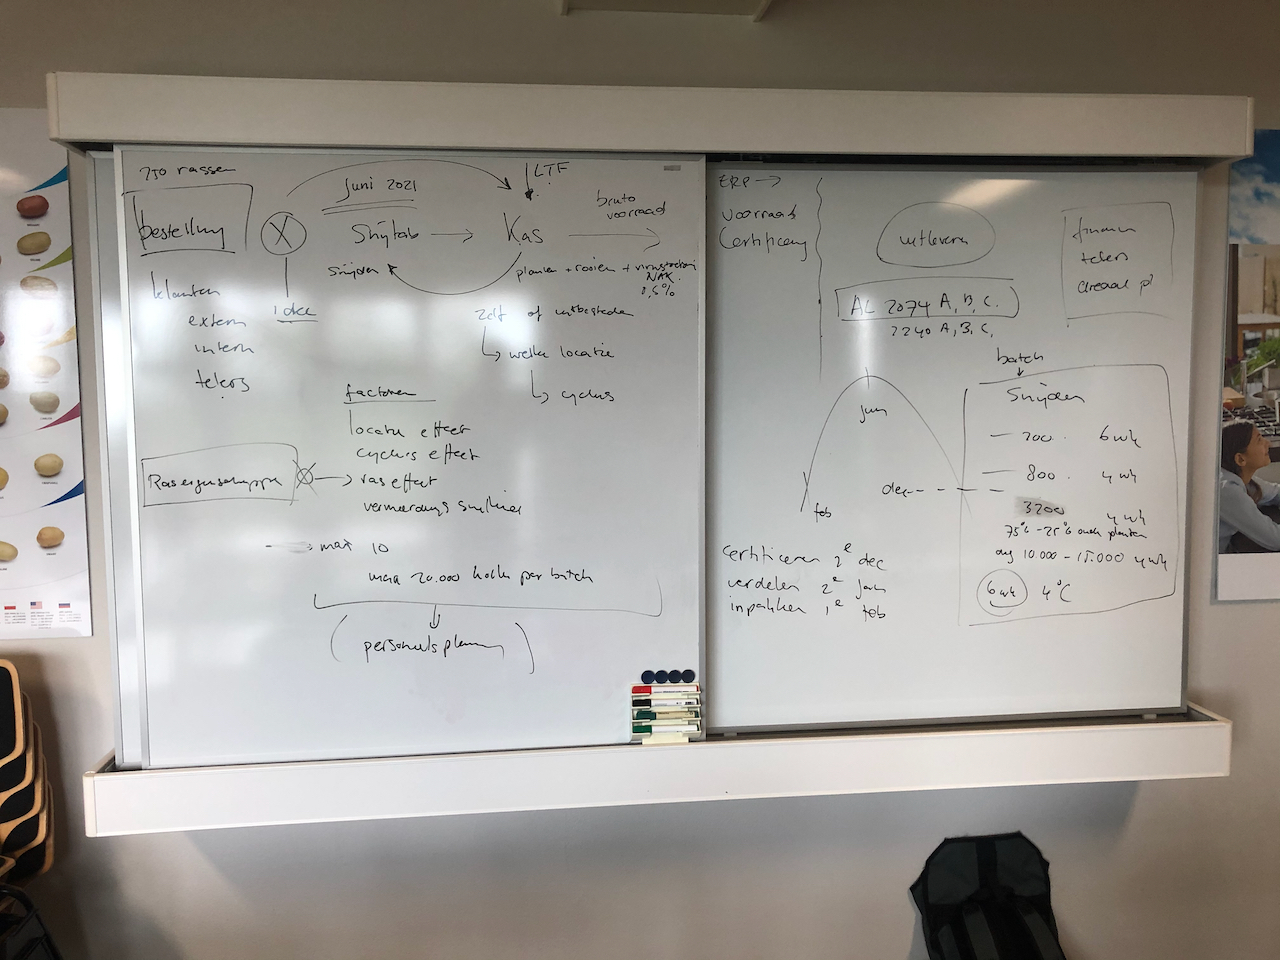 750 rassen
bestelling
X
klanten
extern
intern
telers
idee
Juni 2021
Snijlab
snijden
LTF
Kas
bruto
voorraad
planten + rooien +
NAK
0,5%
zelf of uitbesteden
welke locatie
cyclus
factoren
locatie effect
cyclus effect
ras effect
vermeerderings snelheid
Raseigenschappen
max 10
max 20.000 per batch
personeelsplanning
ERP
voorraad
Certificering
uitleveren
financien
telers
AL 2074 A, B, C.
2240 A, B, C.
batch
Snijden
200. 6 wk
800. 4 wk
3200 4 wk
75% - 25% oude planten
10.000 - 15.000 4 wk
6 wk 4°C
jun
dec
feb
certificeren 2e dec
verdelen 2e jan
inpakken 1e feb